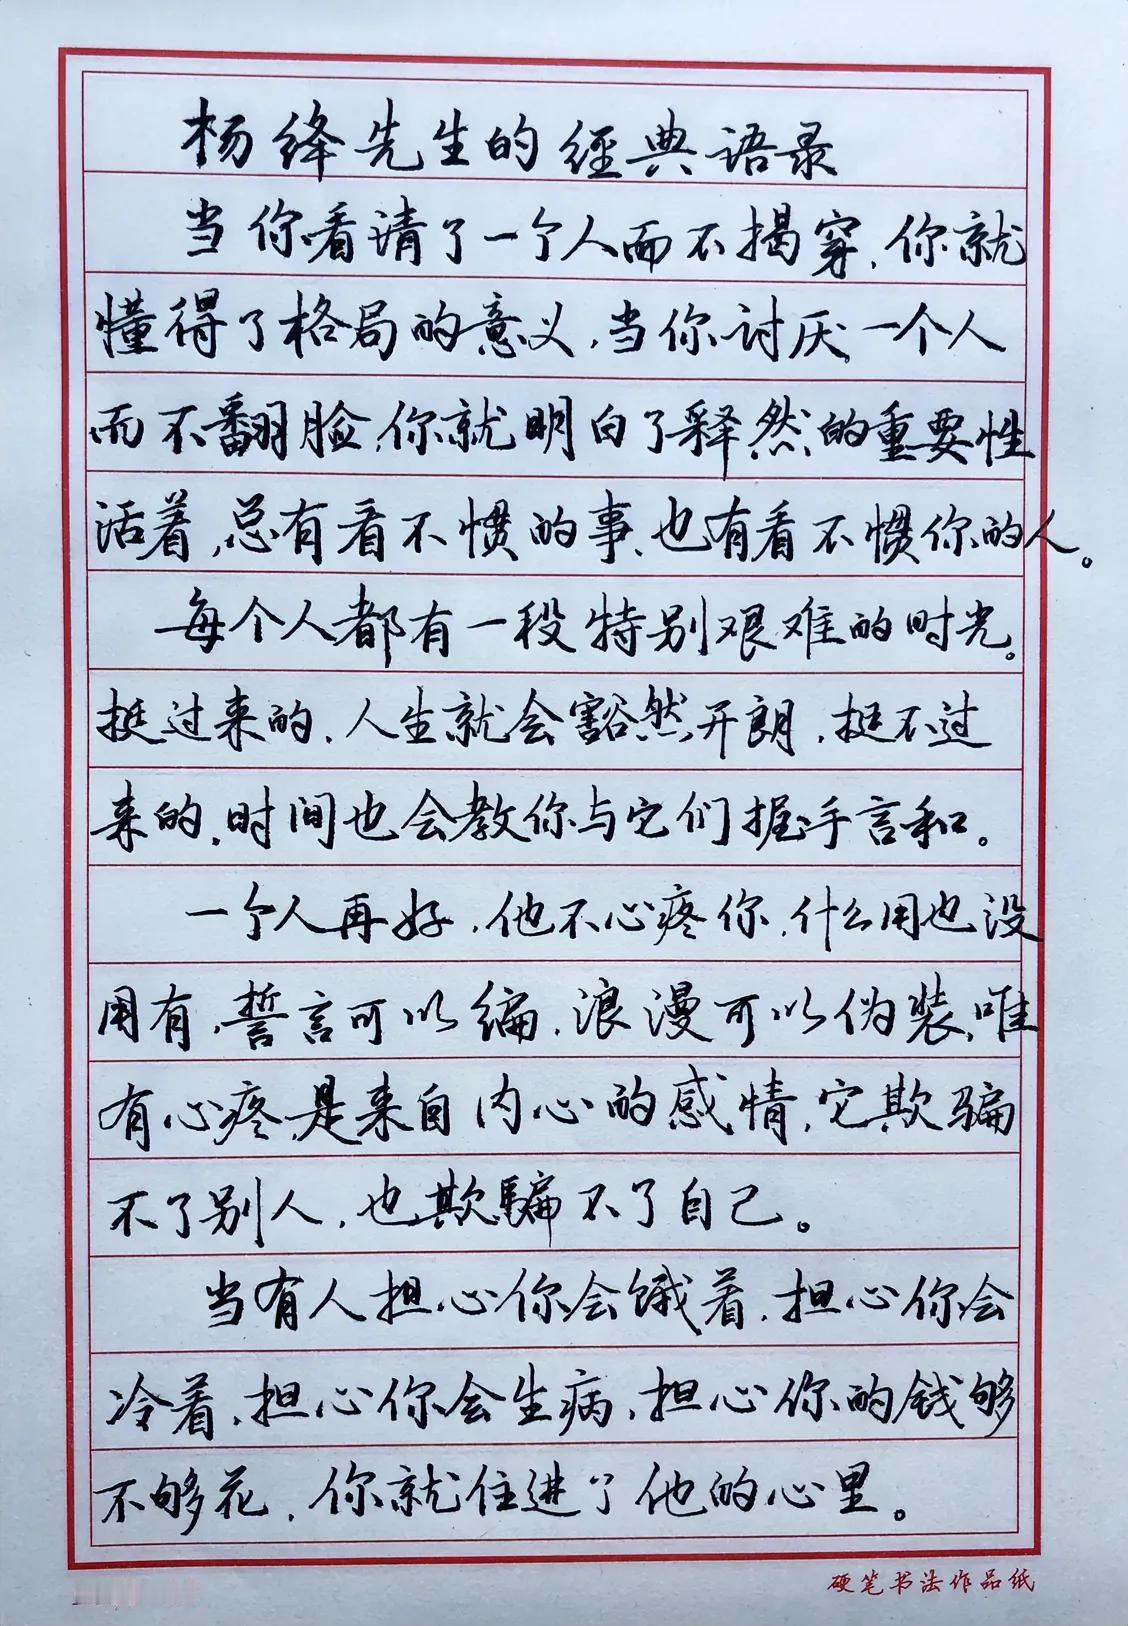 杨绛先生的經典语录
当你看请了一个人而不揭穿,你就
懂得了格局的意义,当你讨厌一个人
而不翻脸,你就明白了释然的重要性
活着,总有看不惯的事、也有看不惯你的人。
每个人都有一段特别艰难的时光。
挺过来的,人生就会豁然开朗,挺不过
来的,时间也会教你与它们握手言和。
一个人再好,他不心疼你,什么用也没
用有,誓言可以编,浪漫可以伪装,唯
有心疼,是来自内心的感情,它欺骗
不了别人,也欺骗不了自己。
当有人担心你会饿着,担心你会
冷着,担心你会生病,担心你的钱够
不够花,你就住进了他的心里。
硬笔书法作品纸